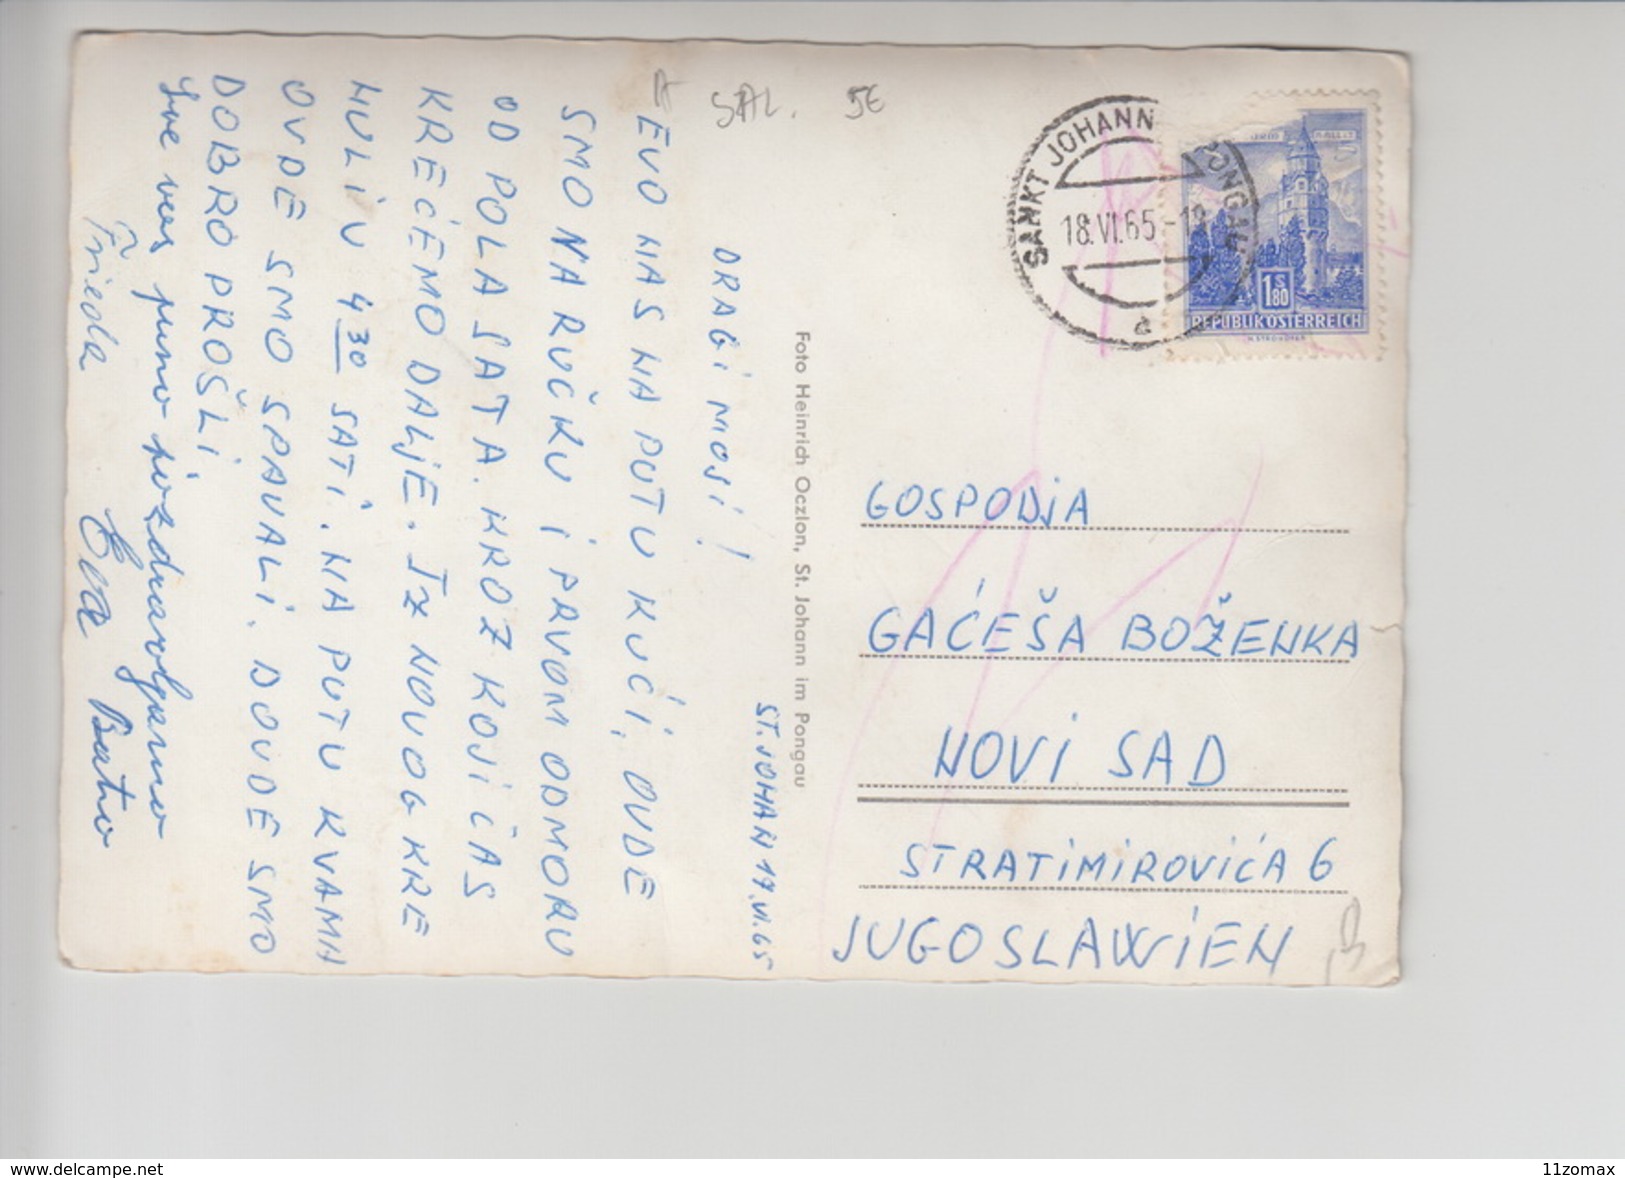 A
SAL. 5€
ST. JOHAN 17.VI.65
DRAGI MOJI!
EVO NAS NA PUTU KUĆI, OVDE
SMO NA RUČKU I PRVOM ODMORU
OD POLA SATA. KROZ KOJI ČAS
KREĆEMO DALJE. IZ NOVOG KRE
NULI U 4 30 SATI. NA PUTU KVAMA
OVDE SMO SPAVALI. DOVDE SMO
DOBRO PROŠLI.
Sve vas puno pozdravljamo
Frieda Eva Bato
Foto Heinrich Oczlon, St. Johann im Pongau
SANKT JOHANN PONGAU
18.VI.65-18
1 S 80
REPUBLIK ÖSTERREICH
GOSPODJA
GAĆEŠA BOŽENKA
NOVI SAD
STRATIMIROVIĆA 6
JUGOSLAWIEN
www.delcampe.net
11zomax